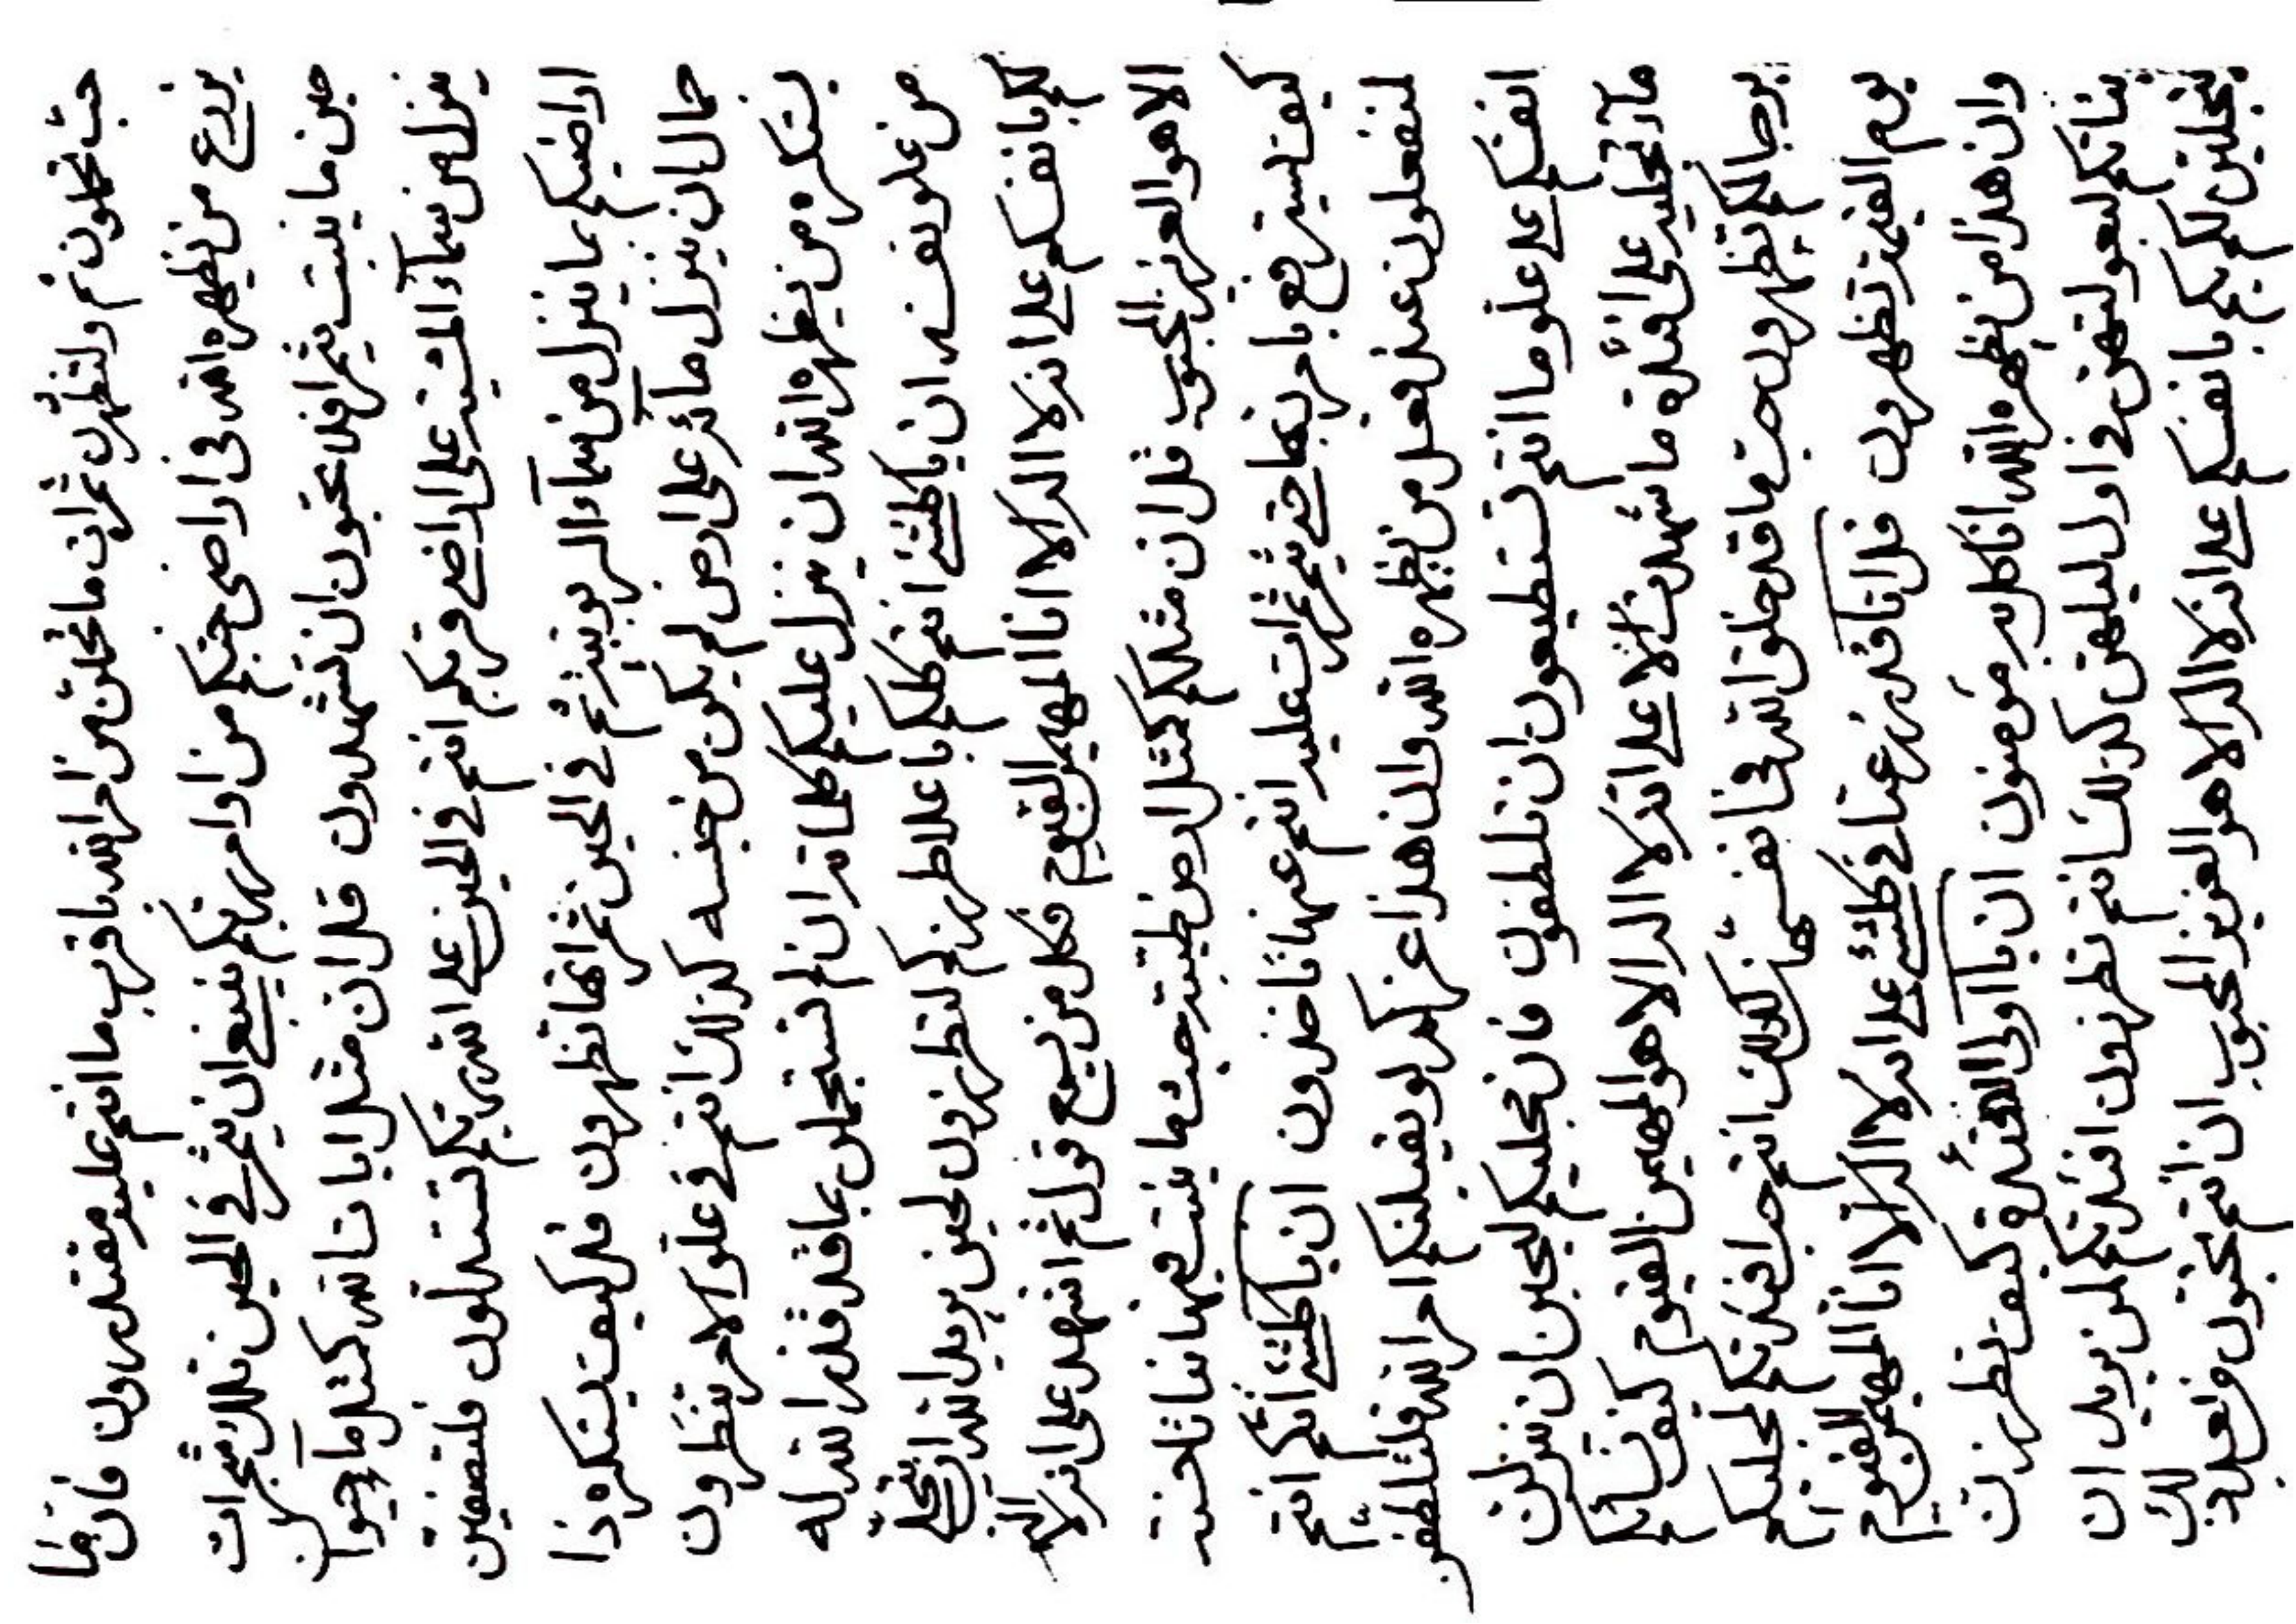 حبّ تحلون ثم ولتظهرن ثمرات ما تحلن من امر الله باقرب ما انتم عليه مقتدرون فان مما
يزرع من يظهره الله فى اراضى حبكم من اوامر ربكم ينبغى ان يثمر فى الحين تلك شجرات
حين ما ينبت يثمر افلا تحبون ان تشهدون قل ان مثل ايات الله كمثل مآء حيوان
ينزل من سمآء المشية على اراضى قربكم انتم فى الحين على الله ربكم تستدلون فلتصفين
اراضيكم بما ينزل من سمآء الربوبية ثم فى الحين ثمراتها تظهرون قل كيف يستكره ذا
حمال ان ينزل مائه على ارض لم يكن من جنسه كذلك انتم فى علو الامر تنظرون
يستكره من يظهره الله ان ينزل عليكم كلماته ان لم تستجملن بما قد قدر الله له
من علو نفسه ان يا كلشئ انتم كلكم باعلا طرزكم لتطرزون لحين يريد الله ان يتجلى
لكم بانفسكم على انه لا اله الا انا المهيمن القيوم فكل من يسمع قول ثم اشهد على انه لا اله
الا هو العزيز المحبوب قل ان مثلكم كمثل ارض طيبة حبّ ما ينبت فيها نباتا حسنة
كيف ليسترفع بامر ربها حتى يثمر ثمرات عليه انتم عنها تاخذون ان يا كلشئ انتم
لتفعلون عند فعل من يظهره الله وان هذا عز لكم لو يقبلنكم امر الله فلتلطفن
انفسكم على علو ما انتم تستطيعون ان تلطفون فان تجليكم لحين ان ينزلن
مآء تجليه على افئدة ما شهدت الا على انه لا اله الا هو المهيمن القيوم كيف نسائكم
برجالكم تظهرون حب ما قد خلق الله فى انفسهن كذلك انتم حب افئدتكم لتجليكم
يوم القيمة تظهرون قل انا قد زرعنا فى كلشئ على انه لا اله الا انا المهيمن القيوم
وان هذا من يظهره الله انا كل به مؤمنون ان يا اولى الافئدة كيف تطرزن
بناتكم لبعولتهن فى اول ليلهن كذلك انتم تطرزون افئدتكم لمن يريد ان
يتجلين لكم بكم بانفسكم على انه لا اله الا هو العزيز المحبوب ان انتم تحبون فعل ذلك